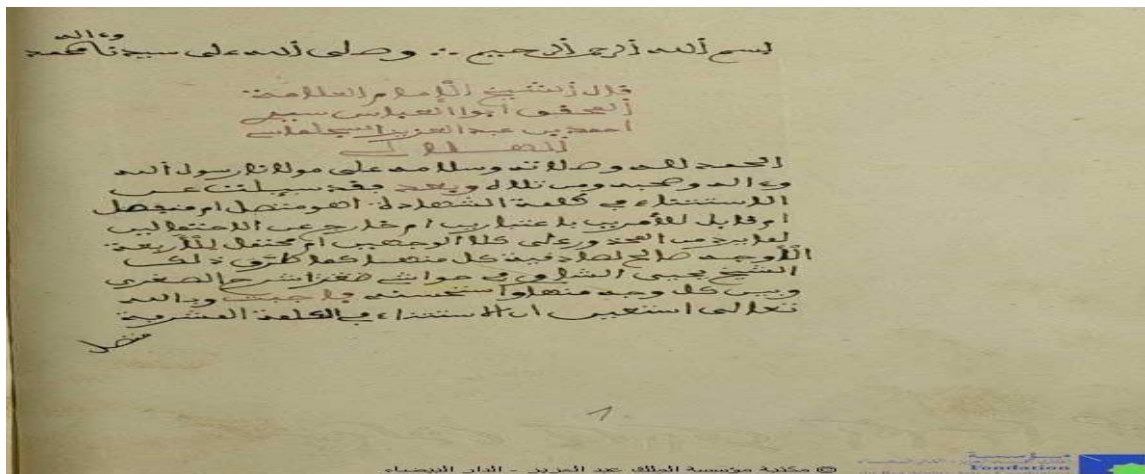 بسم الله الرحمن الرحيم .. وصلى الله على سيدنا محمد وءاله
قال الشيخ الإمام العلامة
المحقق أبوا العباس سيدي
احمد بن عبد العزيز السجلماسي
الهلالي
الحمد لله وصلاته وسلامه على مولانا رسول الله
وءاله وصحبه ومن تلاه وبعد فقد سيلت عن
الاستثناء في كلمة الشهادة أهو متصل ام منفصل
ام قابل للأمرين باعتبارين ام خارج عن الاحتمالين
لما يرد من المحذور على كلا الوجهين ام محتمل للأربعة
الأوجه صالح لصادفية كل منها كما طرق ذلك
الشيخ يحيى الشاوي في حواشي شرح الصغرى
وبين كل وجه منها واستحسنه فاجبت وبالله
تعالى استعين ان الاستثناء في الكلمة المشرفة
متصل
1
© مكتبة مؤسسة الملك عبد العزيز - الدار البيضاء
مؤسسة
Fondation